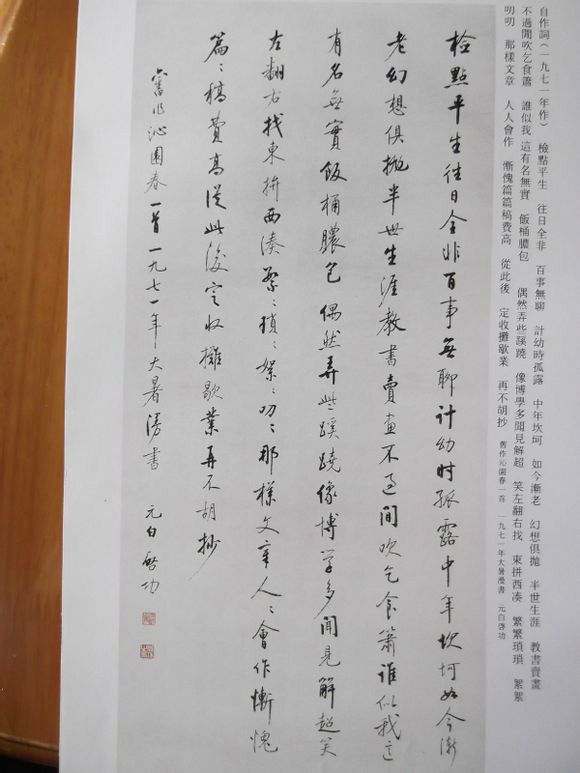 自作詞（一九七一年作） 檢點平生 往日全非 百事無聊 計幼時孤露 中年坎坷 如今漸老 幻想俱拋 半世生涯 教書賣畫
不過閒吹乞食簫 誰似我 這有名無實 飯桶膿包 偶然弄些蹊蹺 像博學多聞見解超 笑左翻右找 東拼西凑 繁繁瑣瑣 絮絮
叨叨 那樣文章 人人會作 慚愧篇篇稿費高 從此後 定收攤歇業 再不胡抄 舊作沁園春一首 一九七一年大暑漫書 元白啓功
檢點平生往日全非百事無聊計幼时孤露中年坎坷如今漸
老幻想俱拋半世生涯教書賣畫不過閒吹乞食簫誰似我這
有名無實飯桶膿包偶然弄些蹊蹺像博學多聞見解超笑
左翻右找東拼西湊繁〻瑣〻絮〻叨〻那樣文章人〻會作慚愧
篇〻稿費高從此後定收攤歇業再不胡抄
舊作沁園春一首一九七一年大暑漫書 元白啓功